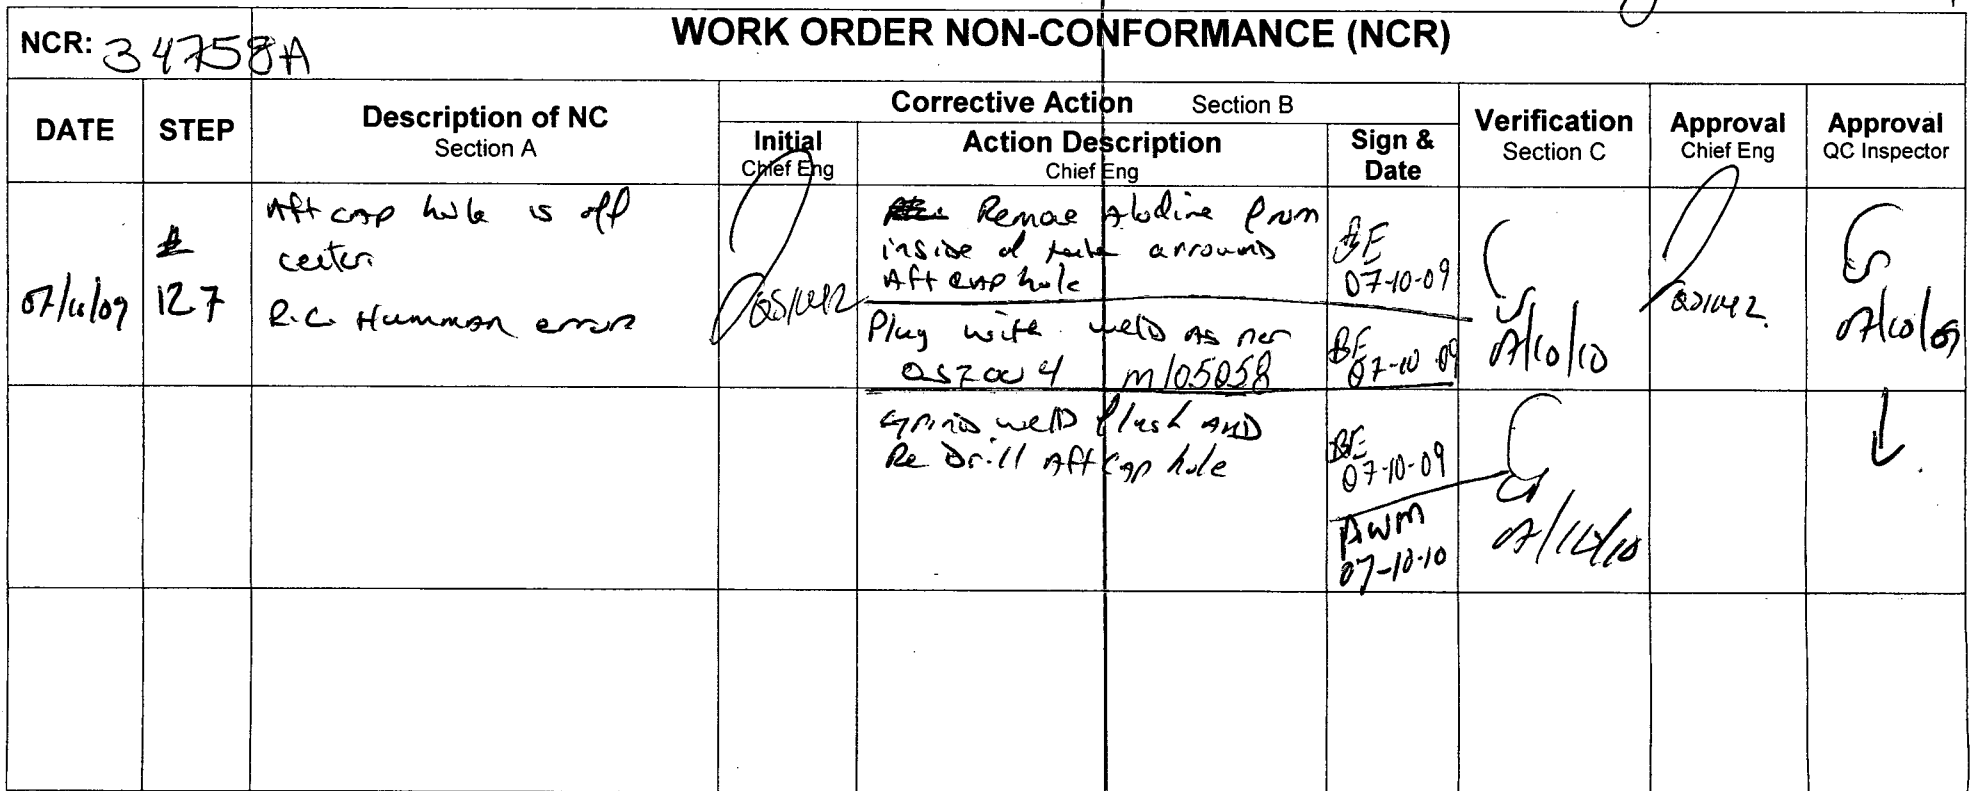 NCR: 34758A
WORK ORDER NON-CONFORMANCE (NCR)
DATE
STEP
Description of NC
Section A
Corrective Action Section B
Initial
Chief Eng
Action Description
Chief Eng
Sign &
Date
Verification
Section C
Approval
Chief Eng
Approval
QC Inspector
12.7
Aft cap hole is off
center
R.C. Humman error
Remove Alodine from
inside of tube arround
Aft cap hole
BE
07-10-09
07/10/10
07/10/09
Plug with weld as per
m105058
BE
07-10-09
Grind weld flush and
Re Drill Aft cap hole
BE
07-10-09
AWM
07-10-10
07/10/10